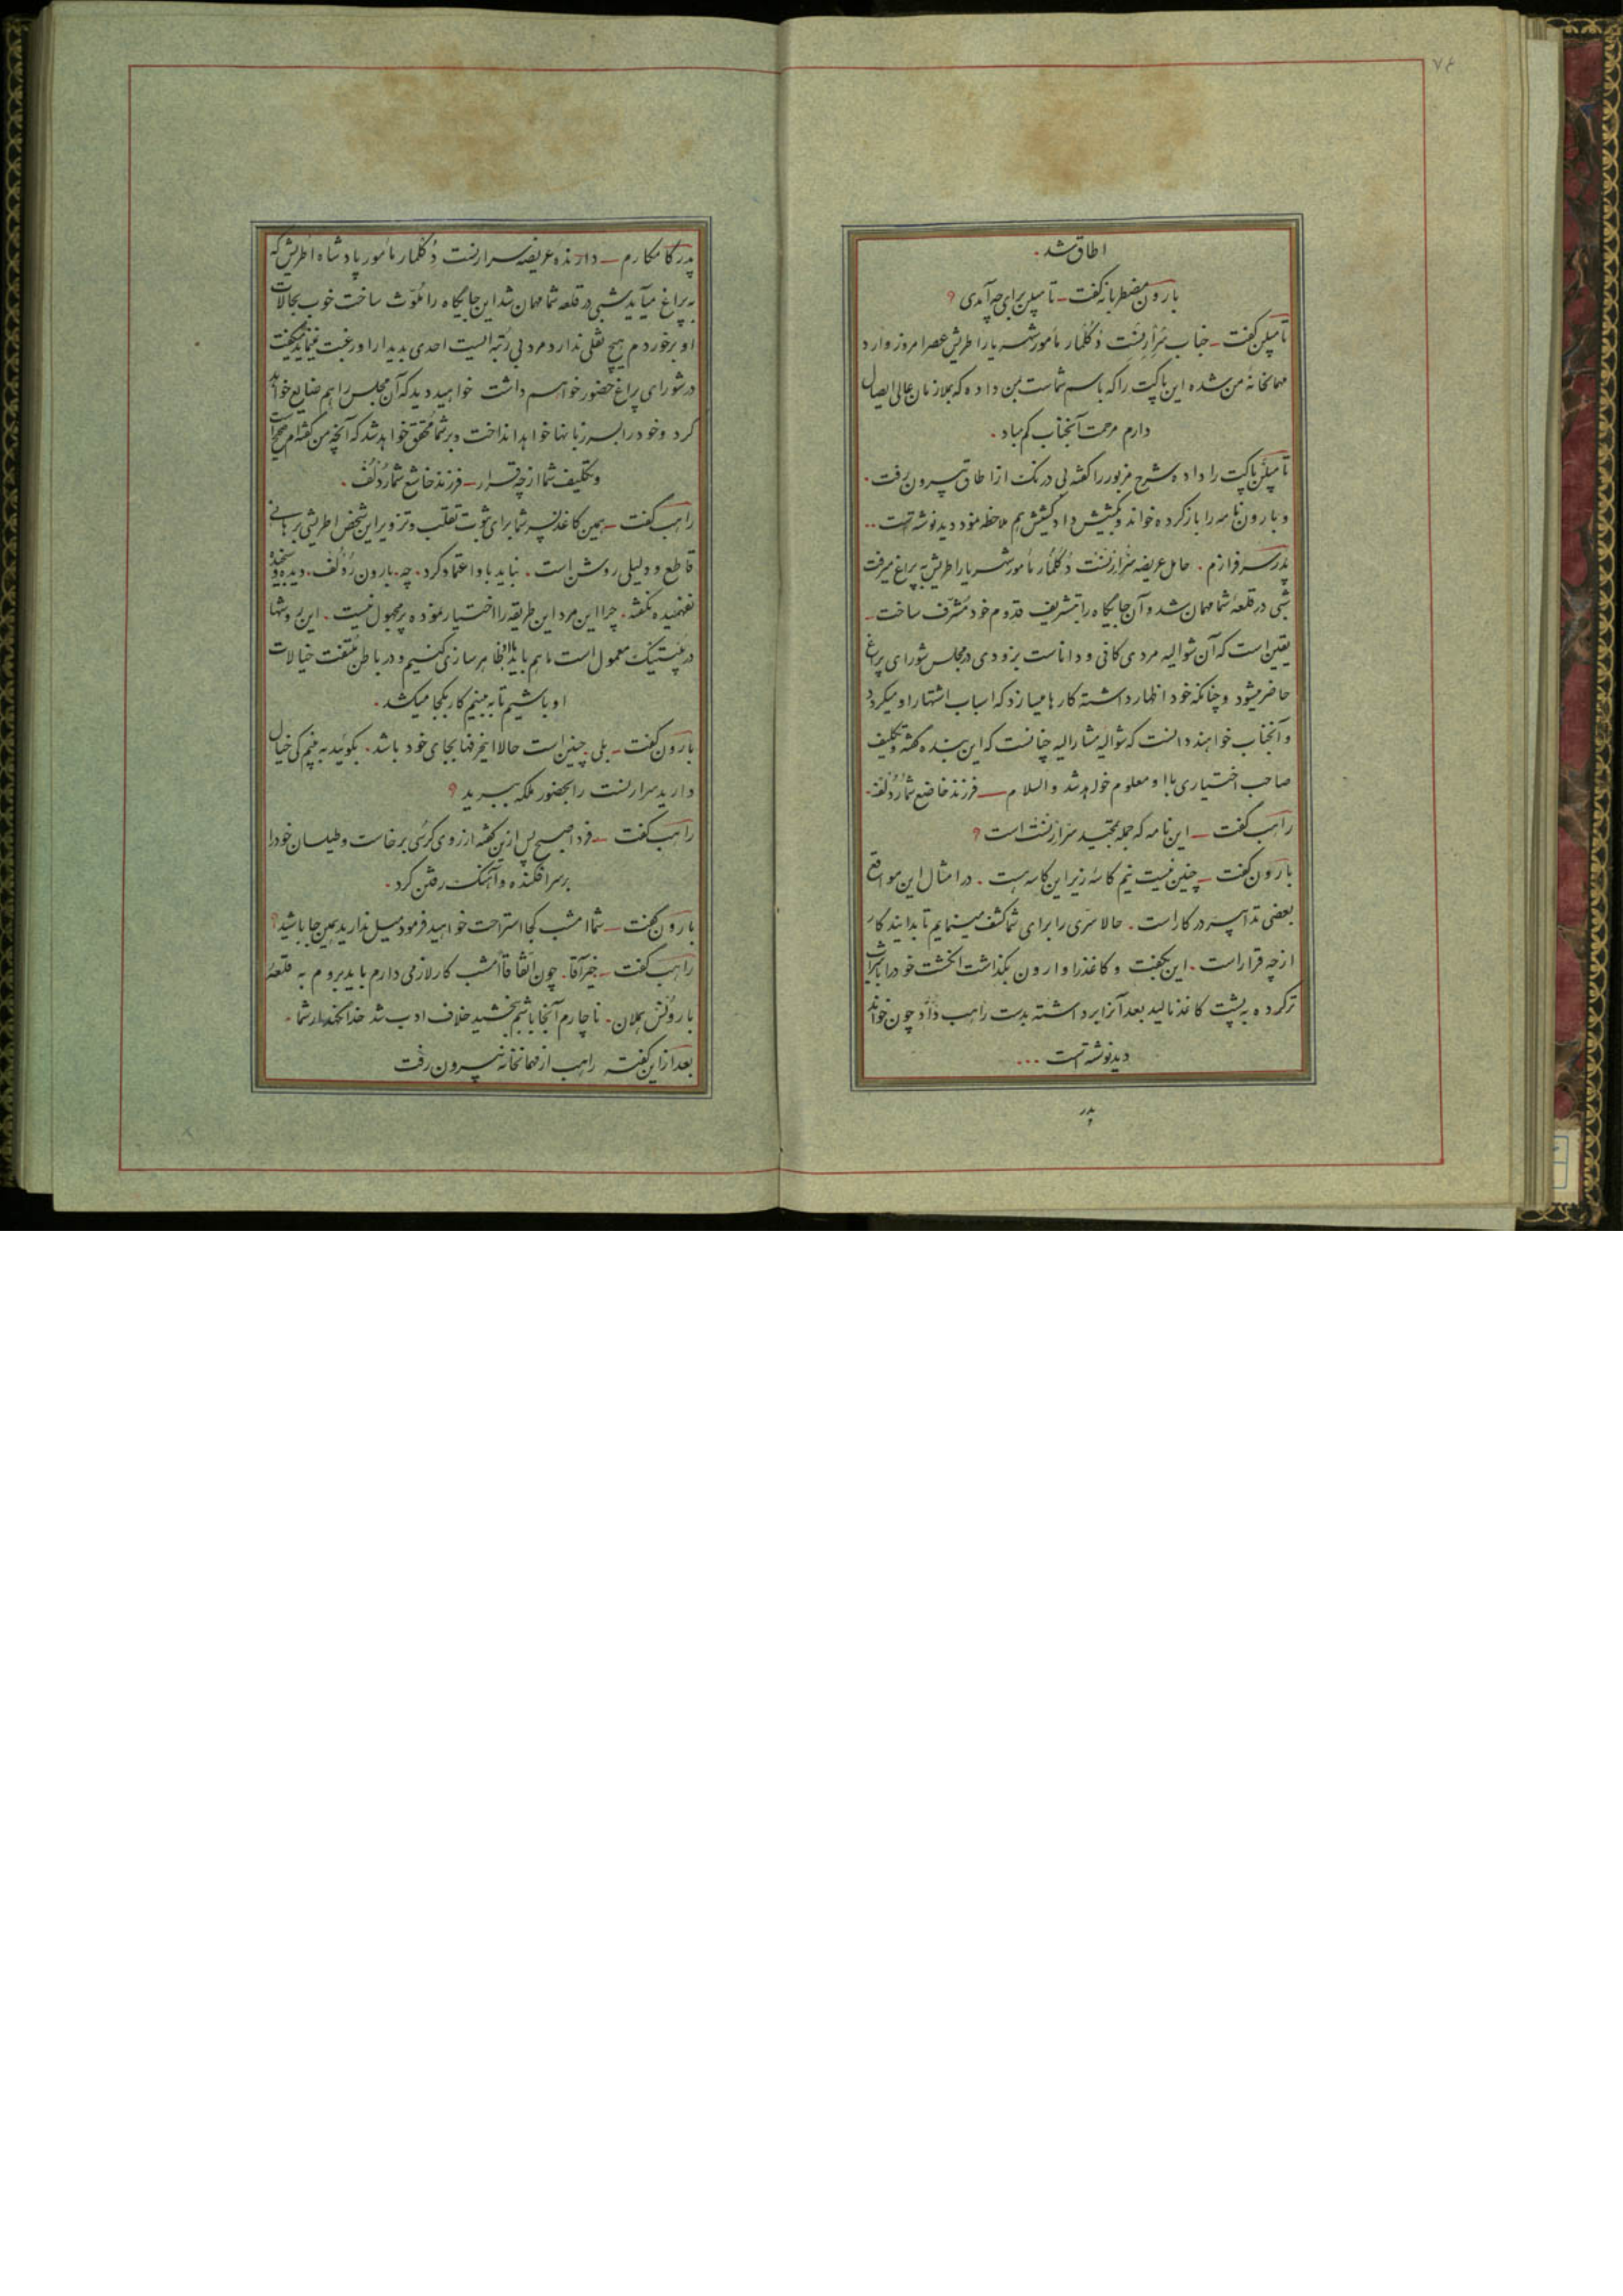 ۷۴
اطاق شد.
بارون مضطربانه گفت – تامپلن برای چه آمدی ؟
تامپلن گفت – جناب سرارنست دکلمار مأمور شهریار اطریش عصر امروز وارد
مهمانخانه من شده این پاکت را که باسم شماست بمن داده که بملازمان عالی ایصال
دارم مرحمت آنجناب کم مباد.
تامپلن پاکت را داده شرح مزبور را گفته بی درنگ از اطاق بیرون رفت.
و بارون نامه را باز کرده خواند و بکشیش داد کشیش هم ملاحظه نمود دید نوشته است..
پدر سرفرازم. حامل عریضه سرارنست دکلمار مأمور شهریار اطریش به پراغ میرفت
شبی در قلعه شما مهمان شد و آن جایگاه را بتشریف قدوم خود مشرف ساخت –
یقین است که آن شوالیه مردی کافی و داناست بزودی در مجلس شورای پراغ
حاضر میشود و چنانکه خود اظهار داشته کارها میسازد که اسباب اشتهار او میگردد
و آنجناب خواهند دانست که شوالیه مشارالیه چنانست که این بنده گفته و تکلیف
صاحب اختیاری با او معلوم خواهد شد والسلام – فرزند خاضع شما ردلف –
راهب گفت – این نامه که جمله تمجید سرارنست است ؟
بارون گفت – چنین نیست نیم کاسه زیر این کاسه هست. در امثال این مواقع
بعضی تدابیر در کار است. حالا سری را برای شما کشف مینمایم تا بدانید کار
از چه قرار است. این بگفت و کاغذ را وارون بگذاشت انگشت خود را بشراب
تر کرده به پشت کاغذ مالید بعد آنرا برداشته بدست راهب داد چون خواند
دید نوشته است ...
پدر
پدر کامکارم – دارنده عریضه سرارنست دکلمار مأمور پادشاه اطریش که
به پراغ میآید شبی در قلعه شما مهمان شد این جایگاه را ملوث ساخت خوب بحالات
او برخوردم هیچ نقلی ندارد مرد بی رتبه ایست احدی بدیدار او رغبت نمینماید میگفت
در شورای پراغ حضور خواهم داشت خواهید دید که آن مجلس را هم ضایع خواهد
کرد و خود را بسر زبانها خواهد انداخت و بر شما محقق خواهد شد که آنچه من گفته‌ام صحیح است
و تکلیف شما از چه قرار – فرزند خاشع شما ردلف.
راهب گفت – همین کاغذ پسر شما برای ثبوت تقلب و تزویر این شخص اطریشی برهانی
قاطع و دلیلی روشن است. نباید باو اعتماد کرد. چه. بارون ردلف. دیده و سنجیده
نفهمیده نگفته. چرا این مرد این طریقه را اختیار نموده پر مجهول نیست. این روشها
در پلتیک معمول است ما هم باید بالظاهر سازی کنیم و در باطن ملتفت خیالات
او باشیم تا به بینیم کار بکجا میکشد.
بارون گفت – بلی چنین است حالا این حرفها بجای خود باشد. بگوئید به بینم کی خیال
دارید سرارنست را بحضور ملکه ببرید ؟
راهب گفت – فردا صبح پس ازین گفته از روی کرسی برخاست و طیلسان خود را
بر سر افکنده و آهنگ رفتن کرد.
بارون گفت – شما امشب کجا استراحت خواهید فرمود میل ندارید همین جا باشید ؟
راهب گفت – خیر آقا. چون اتفاقاً امشب کار لازمی دارم باید بروم به قلعه
بارونس هملان. ناچارم آنجا باشم ببخشید خلاف ادب شد خدا نگهدار شما.
بعد از این گفته راهب از مهمانخانه بیرون رفت